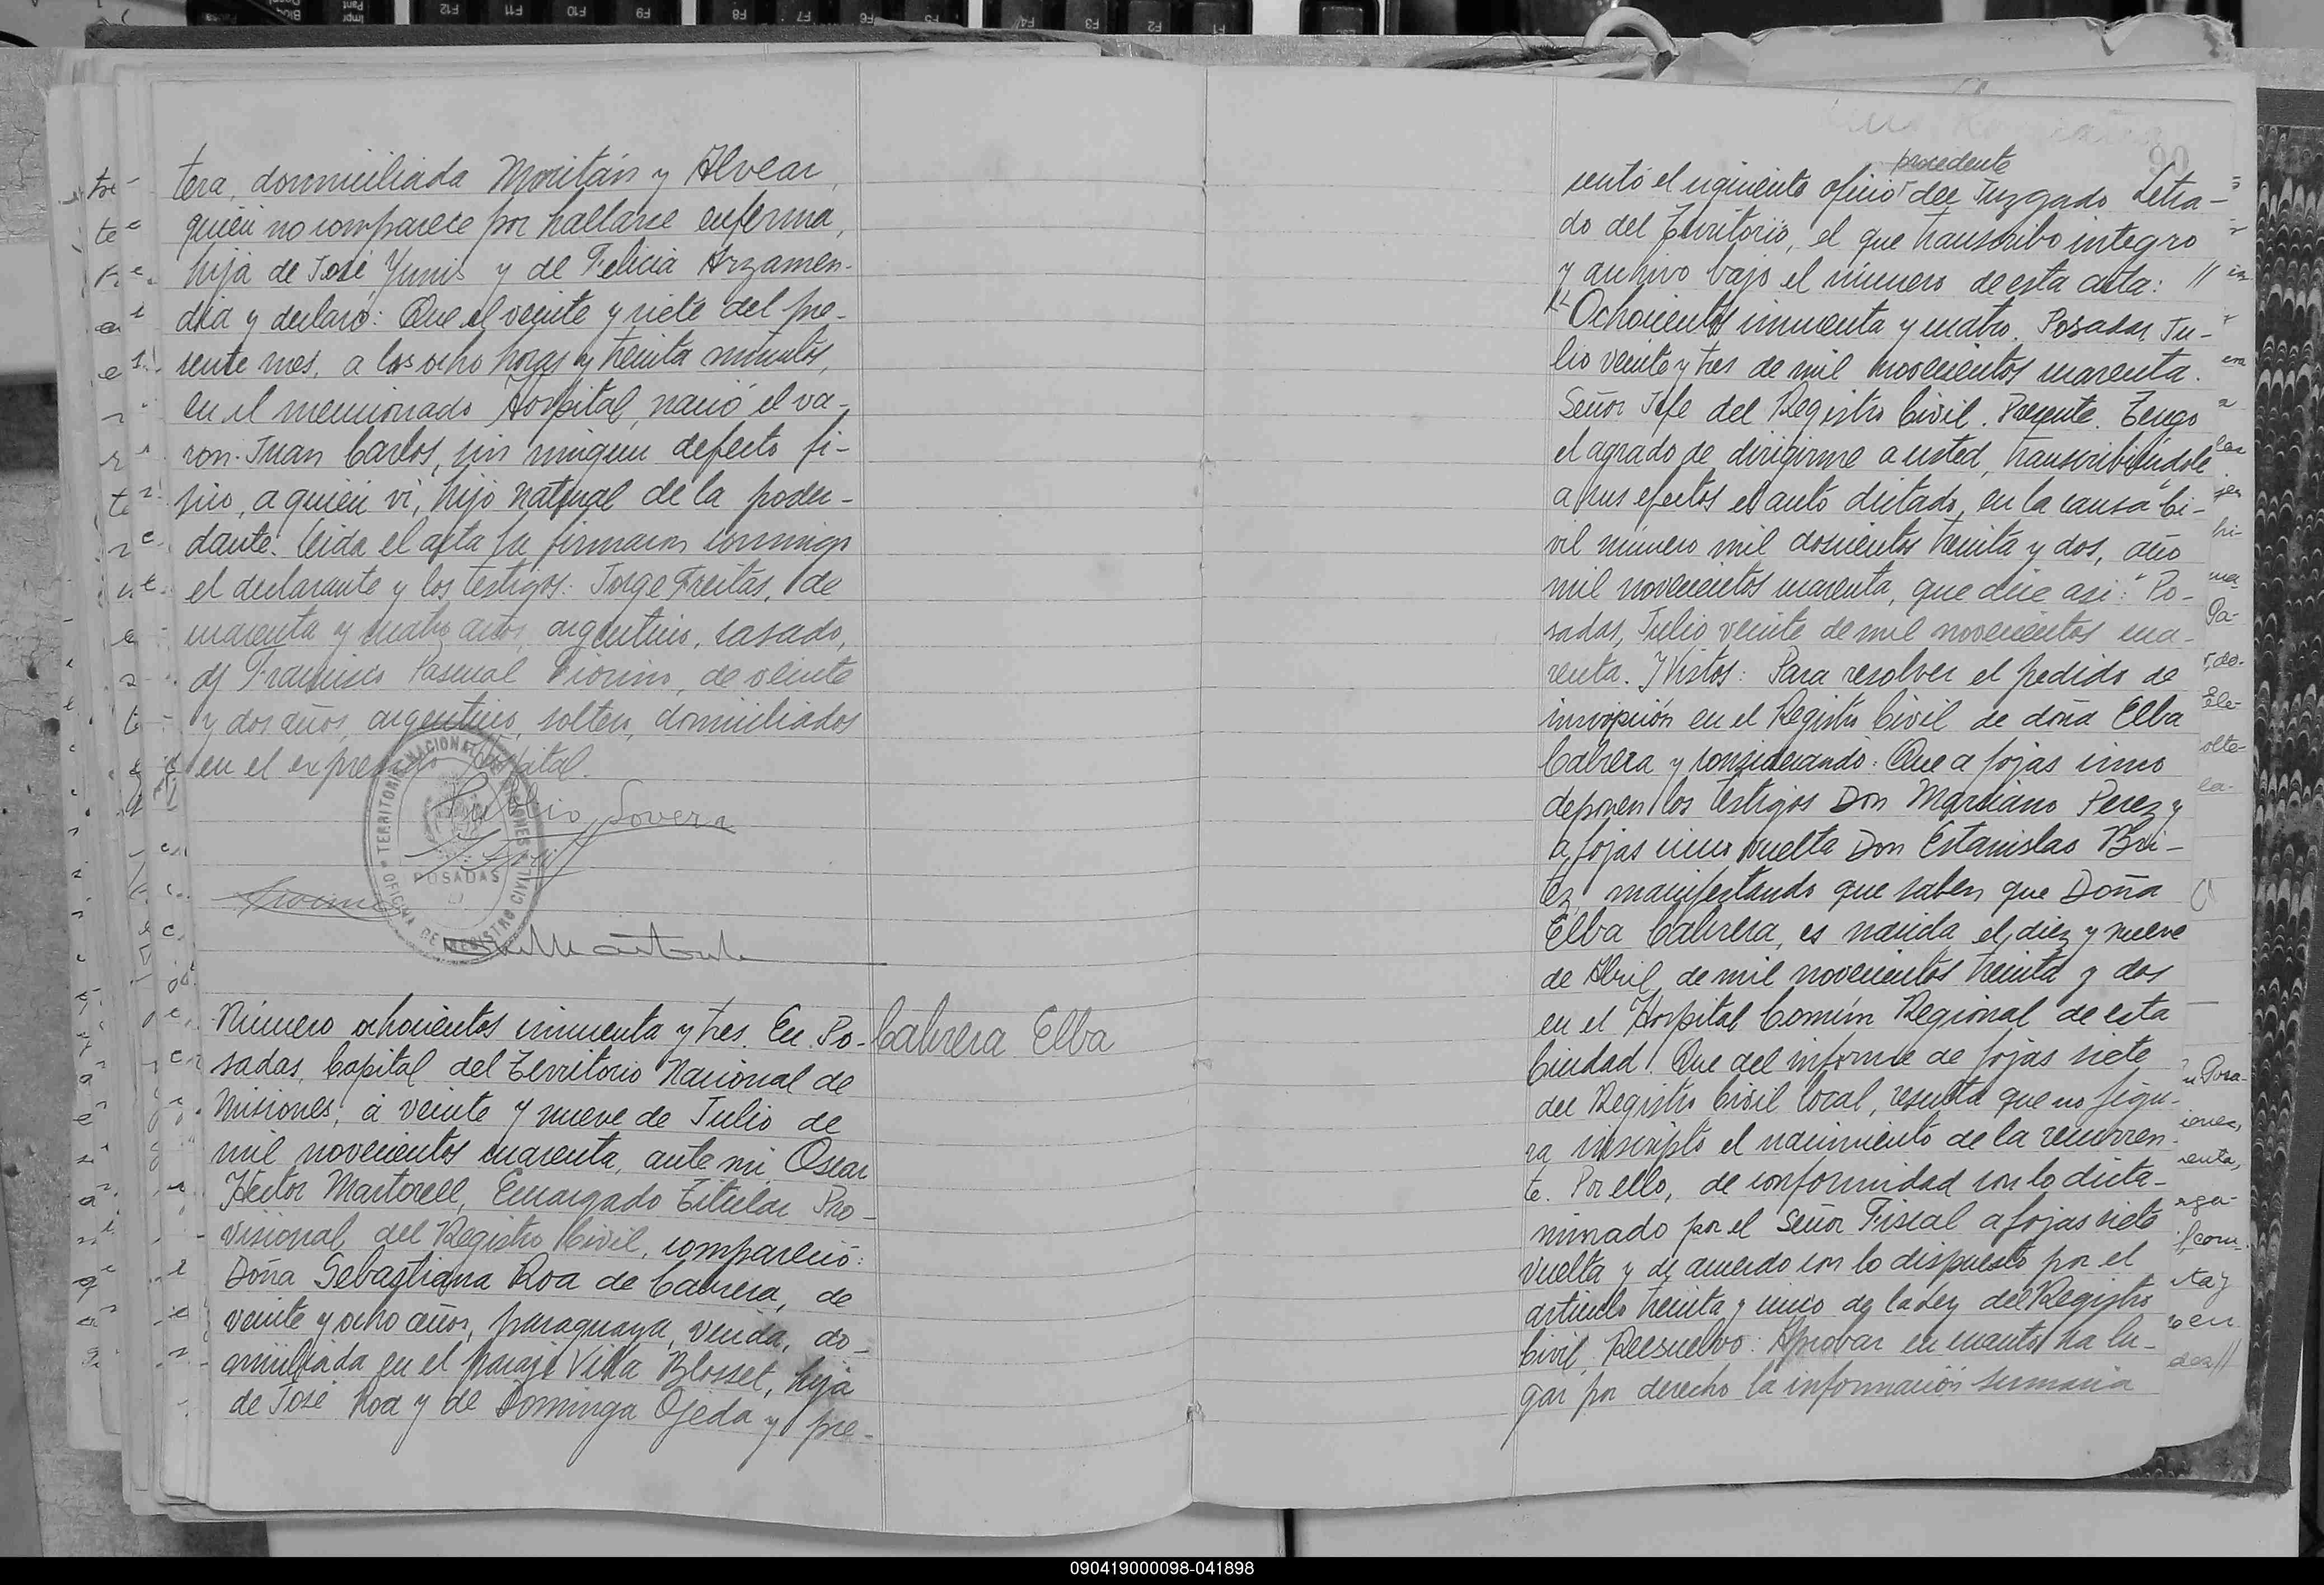 tera, domiciliada Moritán y Alvear,
quien no comparece por hallarse enferma,
hija de José Yunis y de Felicia Arzamen-
dia y declaró: Que el veinte y siete del pre-
sente mes, a las ocho horas y treinta minutos,
en el mencionado Hospital, nació el va-
ron Juan Carlos, sin ningun defecto fi-
sico, a quien vi, hijo natural de la poder-
dante. Leida el acta la firmaron conmigo
el declarante y los testigos: Jorge Freitas, de
cuarenta y cuatro años, argentino, casado,
y Francisco Pascual Fiorino, de veinte
y dos años, argentino, soltero, domiciliados
en el expresado Hospital.
Lovera
TERRITORIO NACIONAL DE MISIONES
POSADAS
OFICINA DE REGISTRO CIVIL
Número ochocientos cincuenta y tres. En Po-
sadas, Capital del Territorio Nacional de
Misiones, á veinte y nueve de Julio de
mil novecientos cuarenta, ante mi, Oscar
Héctor Martorell, Encargado Titular Pro-
visional del Registro Civil, compareció:
Doña Sebastiana Roa de Cabrera, de
veinte y ocho años, paraguaya, viuda, do-
miciliada en el paraje Villa Blosset, hija
de José Roa y de Dominga Ojeda y pre-
Cabrera Elba
90
procedente
sentó el siguiente oficio del Juzgado Letra-
do del Territorio, el que transcribo integro
y archivo bajo el número de esta acta: //
"Ochocientos cincuenta y cuatro. Posadas, Ju-
lio veinte y tres de mil novecientos cuarenta.
Señor Jefe del Registro Civil. Presente. Tengo
el agrado de dirigirme a usted, transcribiéndole
a sus efectos el auto dictado, en la causa Ci-
vil número mil doscientos treinta y dos, año
mil novecientos cuarenta, que dice asi: "Po-
sadas, Julio veinte de mil novecientos cua-
renta. Y Vistos: Para resolver el pedido de
inscripción en el Registro Civil de doña Elba
Cabrera y considerando: Que a fojas cinco
deponen los testigos Don Marciano Perez y
a fojas cinco vuelta Don Estanislao Bri-
tez, manifestando que saben que Doña
Elba Cabrera, es nacida el diez y nueve
de Abril de mil novecientos treinta y dos
en el Hospital Común Regional de esta
Ciudad. Que del informe de fojas siete
del Registro Civil local, resulta que no figu-
ra inscripto el nacimiento de la recurren-
te. Por ello, de conformidad con lo dicta-
minado por el Señor Fiscal a fojas siete
vuelta y de acuerdo con lo dispuesto por el
artículo treinta y cinco de la Ley del Registro
Civil, Reesuelvo: Aprobar en cuanto ha lu-
gar por derecho la información sumaria
090419000098-041898